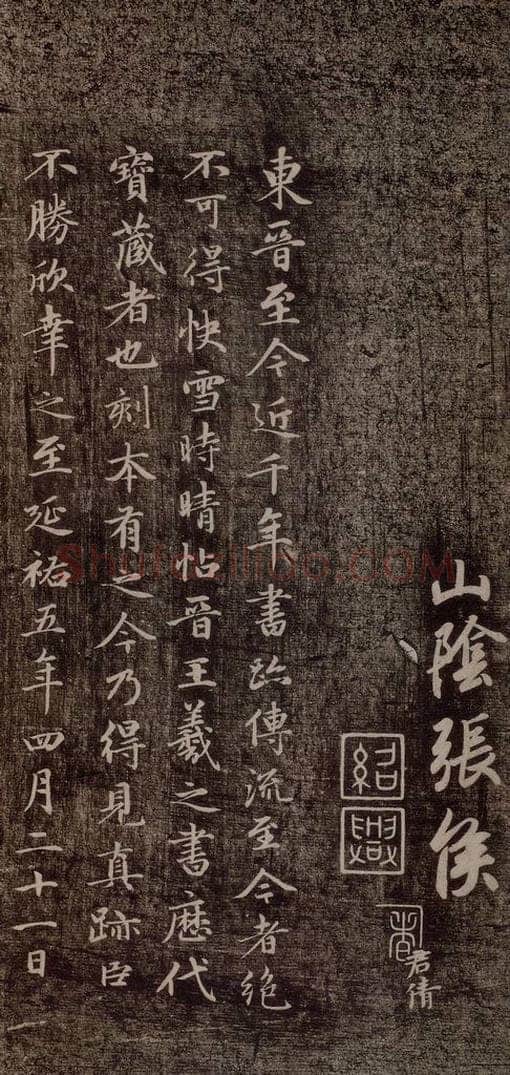 山陰張侯
紹興
君倩
東晋至今近千年書跡傳流至今者絶
不可得快雪時晴帖晋王羲之書歷代
寶藏者也刻本有之今乃得見真跡臣
不勝欣幸之至延祐五年四月二十一日